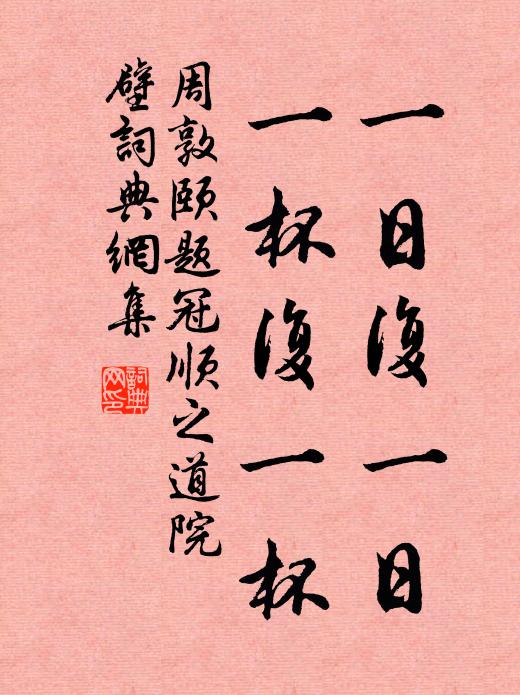 一日復一日
一杯復一杯
周敦頤題冠順之道院
壁詞典網集
詞典
网印